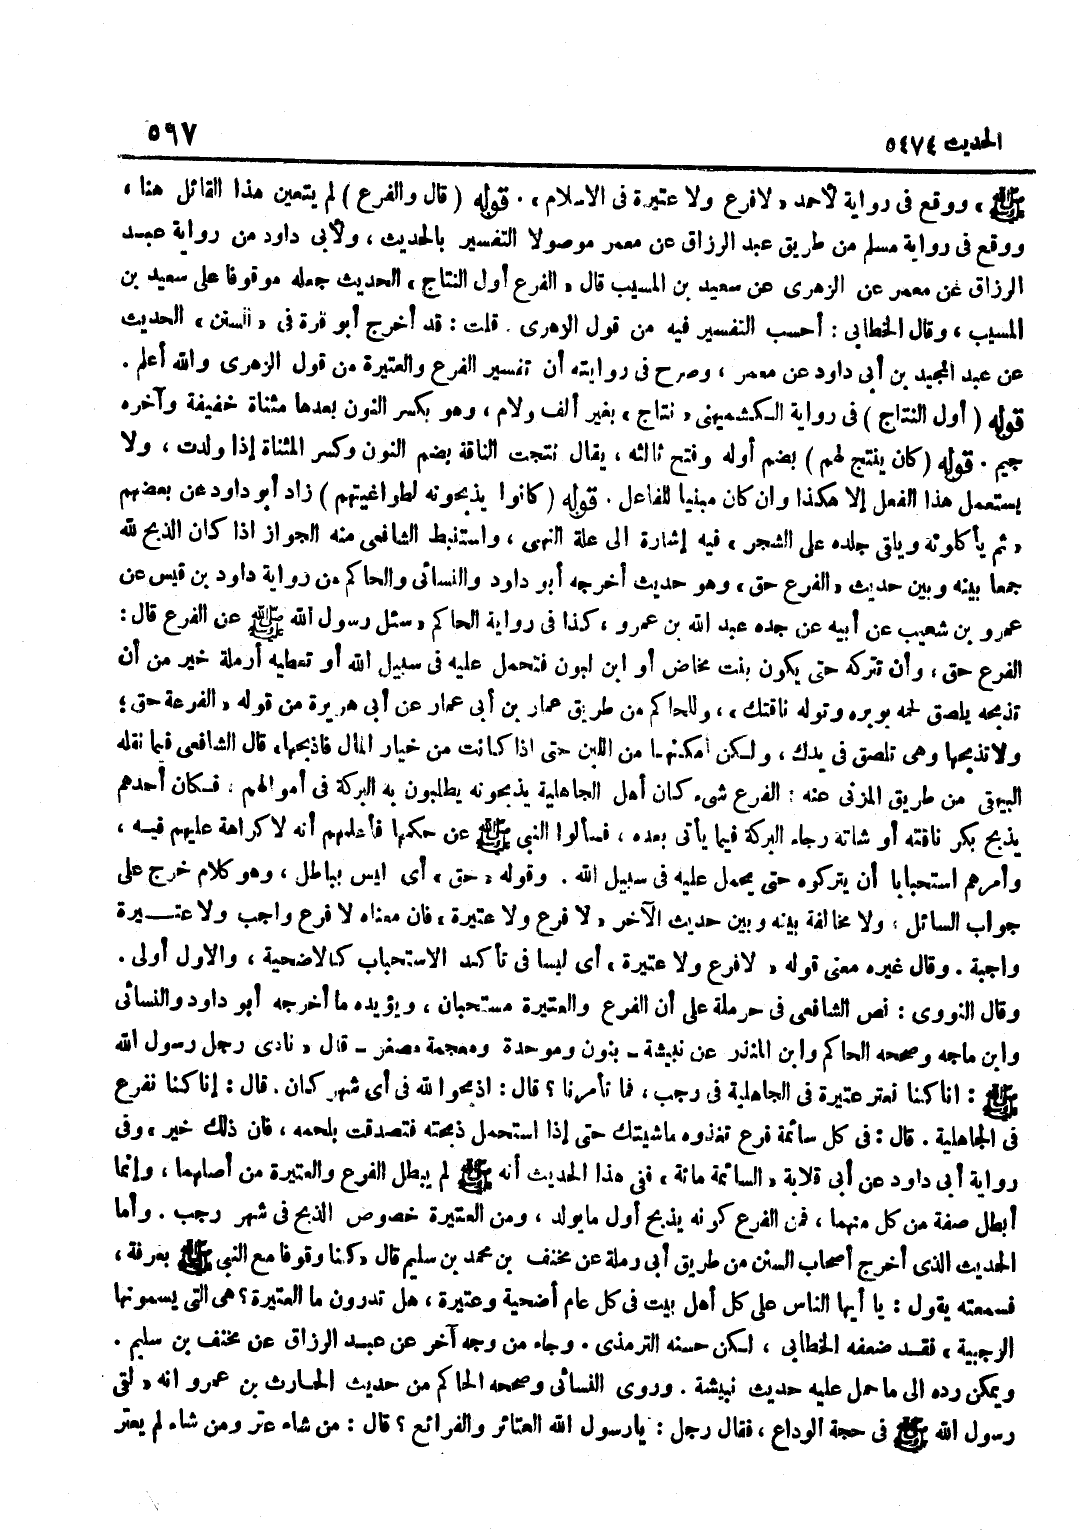 الحديث ٥٤٧٤
٥٩٧
ﷺ » ووقع فى رواية لأحمد « لا فرع ولا عتيرة فى الاسلام » . قوله ( قال والفرع ) لم يتعين هذا القائل هنا ،
ووقع فى رواية مسلم من طريق عبد الرزاق عن معمر موصولا التفسير بالحديث ، ولأبى داود من رواية عبد
الرزاق عن معمر عن الزهرى عن سعيد بن المسيب قال « الفرع أول النتاج » الحديث جعله موقوفا على سعيد بن
المسيب ، وقال الخطابى : أحسب التفسير فيه من قول الزهرى . قلت : قد أخرج أبو قرة فى « السنن » الحديث
عن عبد المجيد بن أبى داود عن معمر ، وصرح فى روايته أن تفسير الفرع والعتيرة من قول الزهرى والله أعلم .
قوله ( أول النتاج ) فى رواية الكشميهنى « نتاج » بغير ألف ولام ، وهو بكسر النون بعدها مثناة خفيفة وآخره
جيم . قوله ( كان ينتج لهم ) بضم أوله وفتح ثالثه ، يقال نتجت الناقة بضم النون وكسر المثناة إذا ولدت ، ولا
يستعمل هذا الفعل إلا هكذا وان كان مبنيا للفاعل . قوله ( كانوا يذبحونه لطواغيتهم ) زاد أبو داود عن بعضهم
« ثم يأكلونه ويلقى جلده على الشجر » فيه إشارة الى علة النهى ، واستنبط الشافعى منه الجواز اذا كان الذبح لله
جمعا بينه وبين حديث « الفرع حق » وهو حديث أخرجه أبو داود والنسائى والحاكم من رواية داود بن قيس عن
عمرو بن شعيب عن أبيه عن جده عبد الله بن عمرو ، كذا فى رواية الحاكم « سئل رسول الله ﷺ عن الفرع قال :
الفرع حق ، وأن تتركه حتى يكون بنت مخاض أو ابن لبون فتحمل عليه فى سبيل الله أو تعطيه أرملة خير من أن
تذبحه يلصق لحمه بوبره وتوله ناقتك » ، وللحاكم من طريق عمار بن أبى عمار عن أبى هريرة من قوله « الفرعة حق ؛
ولا تذبحها وهى تلصق فى يدك ، ولكن أمكنها من اللبن حتى اذا كانت من خيار المال فاذبحها » قال الشافعى فيما نقله
البيهقى من طريق المزنى عنه : الفرع شىء كان أهل الجاهلية يذبحونه يطلبون به البركة فى أموالهم ، فكان أحدهم
يذبح بكر ناقته أو شاته رجاء البركة فيما يأتى بعده ، فسألوا النبى ﷺ عن حكمها فأعلمهم أنه لا كراهة عليهم فيه ،
وأمرهم استحبابا أن يتركوه حتى يحمل عليه فى سبيل الله . وقوله « حق » أى ليس بباطل ، وهو كلام خرج على
جواب السائل ، ولا مخالفة بينه وبين حديث الآخر « لا فرع ولا عتيرة » فان معناه لا فرع واجب ولا عتيرة
واجبة . وقال غيره معنى قوله « لا فرع ولا عتيرة » أى ليسا فى تأكد الاستحباب كالاضحية ، والاول أولى .
وقال النووى : نص الشافعى فى حرملة على أن الفرع والعتيرة مستحبان ، ويؤيده ما أخرجه أبو داود والنسائى
وابن ماجه وصححه الحاكم وابن المنذر عن نبيشة ـ بنون وموحدة ومعجمة مصغر ـ قال « نادى رجل رسول الله
ﷺ : انا كنا نعتر عتيرة فى الجاهلية فى رجب ، فما تأمرنا ؟ قال : اذبحوا لله فى أى شهر كان . قال : إنا كنا نفرع
فى الجاهلية . قال : فى كل سائمة فرع تغذوه ماشيتك حتى إذا استحمل ذبحته فتصدقت بلحمه ، فان ذلك خير » وفى
رواية أبى داود عن أبى قلابة « السائمة مائة » ففى هذا الحديث أنه ﷺ لم يبطل الفرع والعتيرة من أصلهما ، وإنما
أبطل صفة من كل منهما ، فمن الفرع كونه يذبح أول ما يولد ، ومن العتيرة خصوص الذبح فى شهر رجب . وأما
الحديث الذى أخرج أصحاب السنن من طريق أبى رملة عن مخنف بن محمد بن سليم قال « كنا وقوفا مع النبى ﷺ بعرفة ،
فسمعته يقول : يا أيها الناس على كل أهل بيت فى كل عام أضحية وعتيرة ، هل تدرون ما العتيرة ؟ هى التى يسمونها
الرجبية » فقد ضعفه الخطابى ، لكن حسنه الترمذى . وجاء من وجه آخر عن عبد الرزاق عن مخنف بن سليم .
ويمكن رده الى ما حمل عليه حديث نبيشة . وروى النسائى وصححه الحاكم من حديث الحارث بن عمرو انه « لقى
رسول الله ﷺ فى حجة الوداع ، فقال رجل : يا رسول الله العتائر والفرائع ؟ قال : من شاء عتر ومن شاء لم يعتر